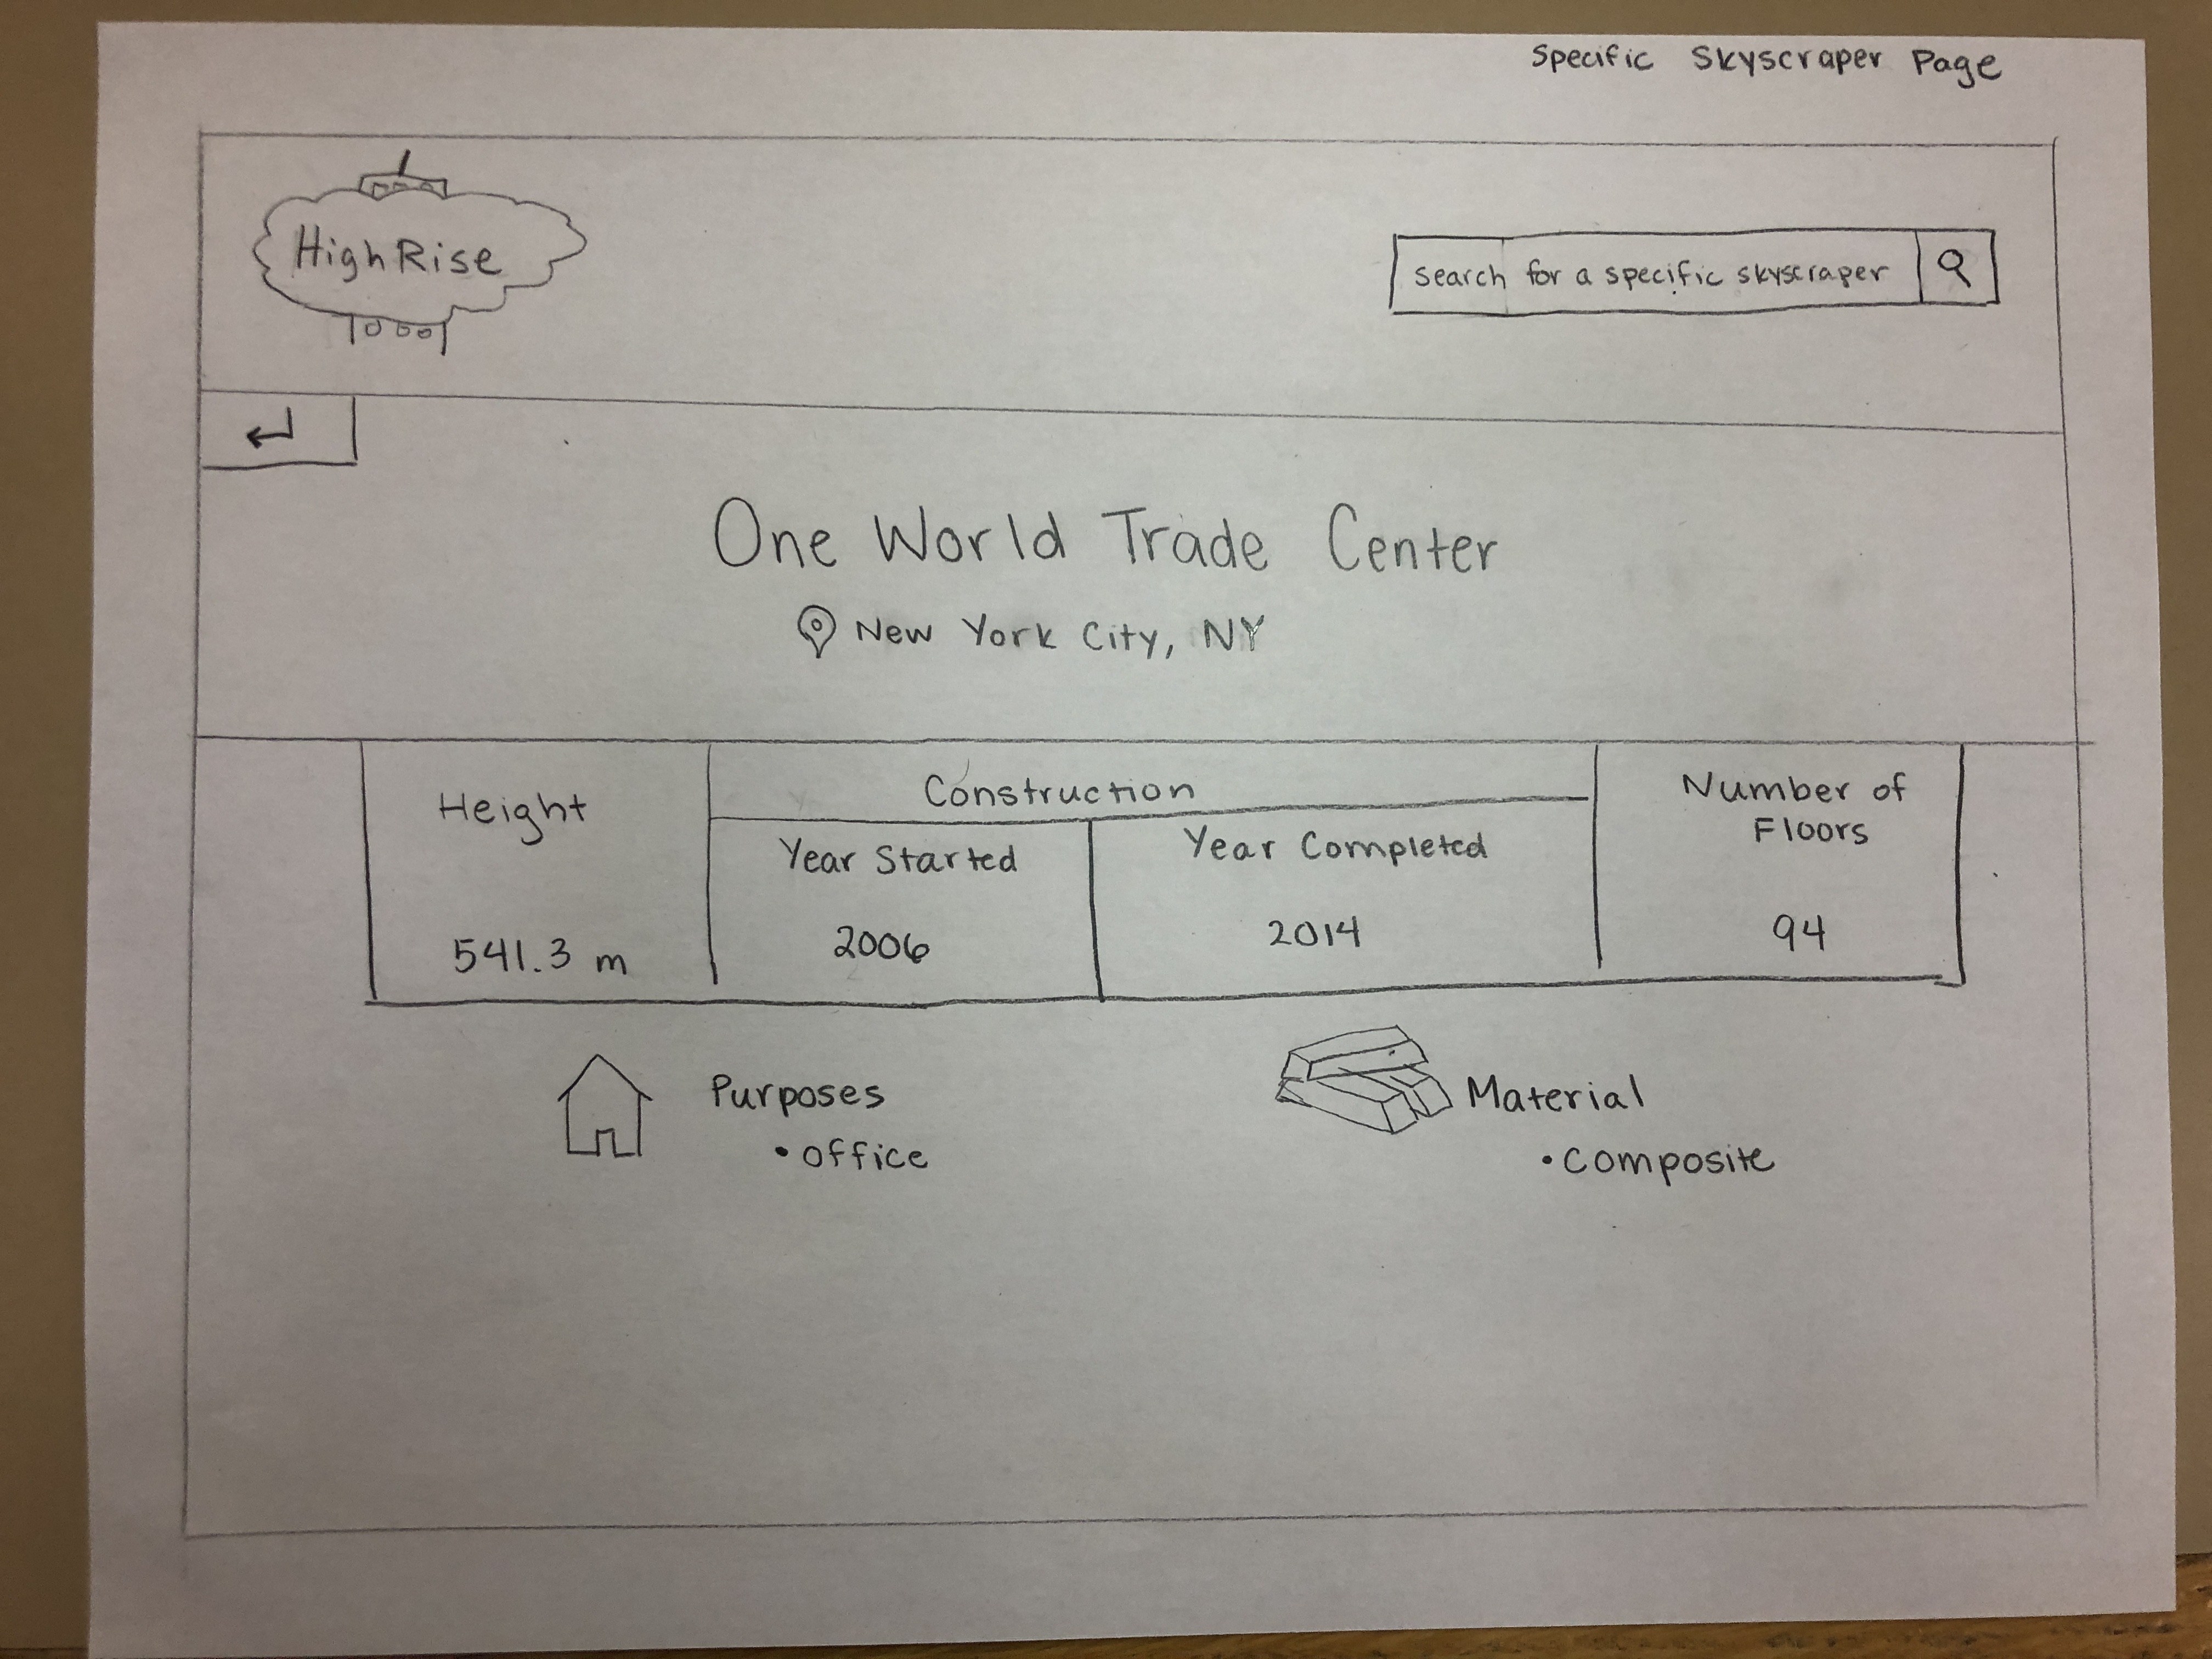 Specific Skyscraper Page
HighRise
search for a specific skyscraper
One World Trade Center
New York City, NY
Height
Construction
Number of
Floors
Year Started
Year Completed
541.3 m
2006
2014
94
Purposes
• office
Material
• composite